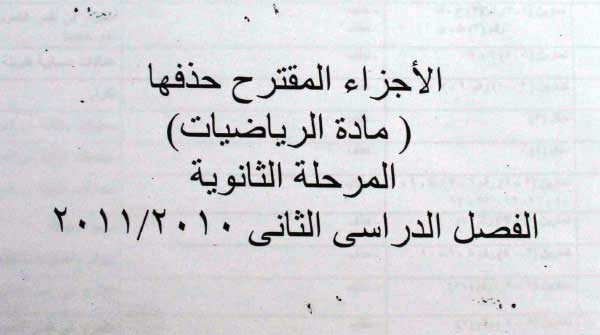 الأجزاء المقترح حذفها
( مادة الرياضيات)
المرحلة الثانوية
الفصل الدراسى الثانى ٢٠١١/٢٠١٠